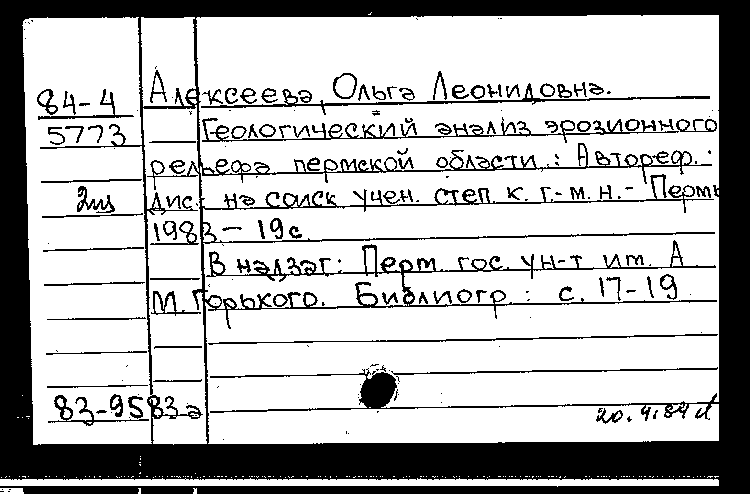 84-4 Алексеева, Ольга Леонидовна.
5773 Геологический анализ эрозионного
рельефа пермской области.: Автореф.:
2 Дис. на соиск учен. степ. к. г.-м. н.- Пермь
1983 - 19с.
В надзаг: Перм. гос. ун-т им. А
М. Горького. Библиогр.: с. 17-19
83-9583а
20.4.84